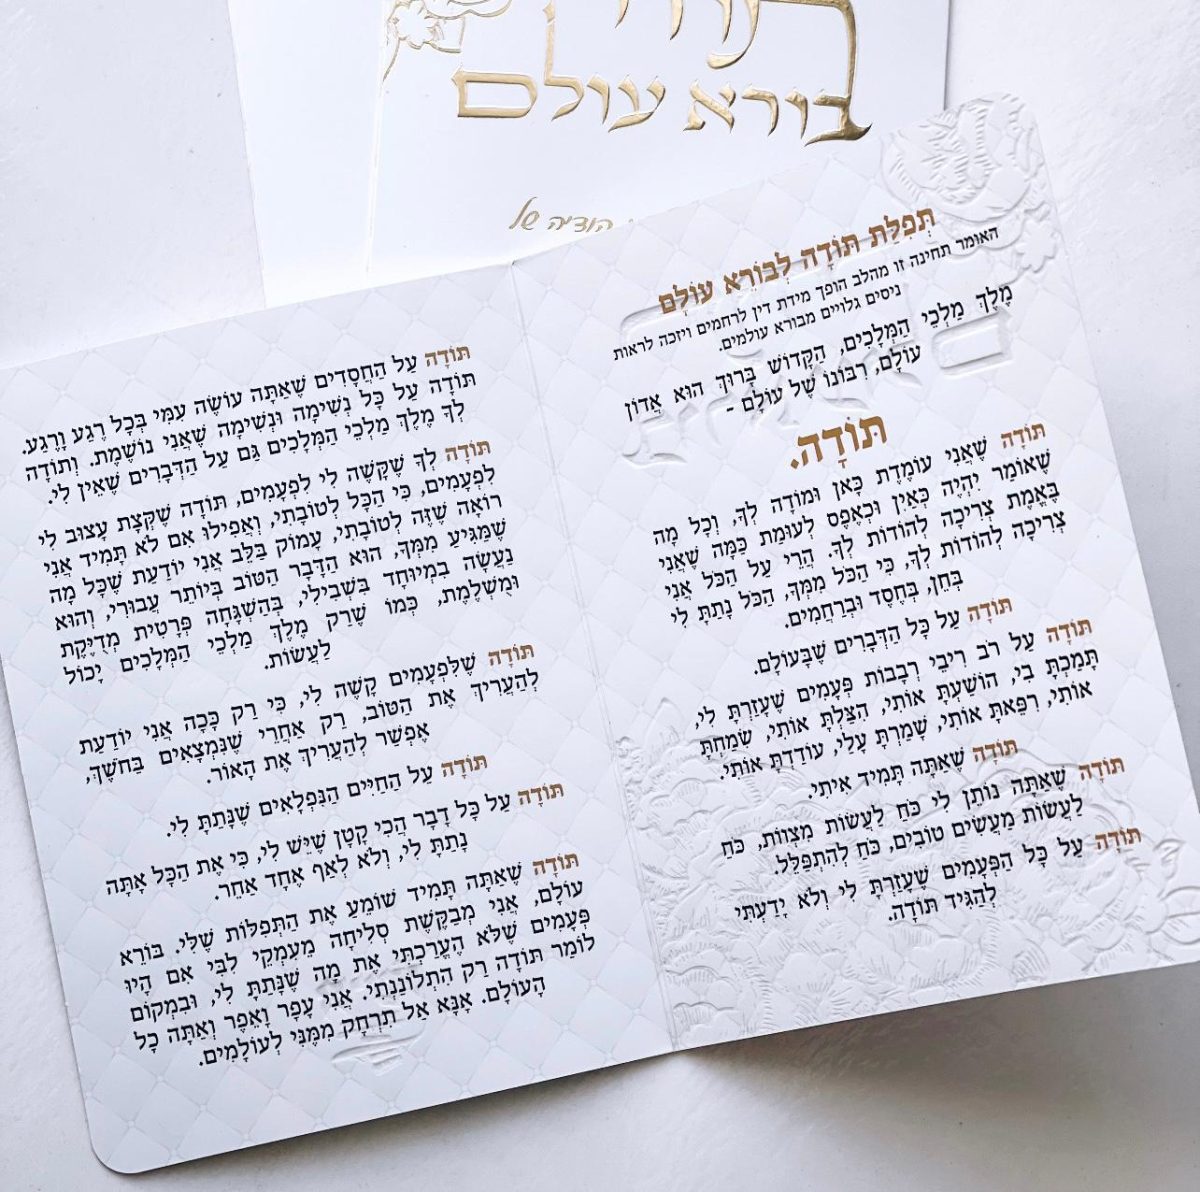 בורא עולם
הודיה של
תְּפִלַּת תּוֹדָה לְבוֹרֵא עוֹלָם
האומר תחינה זו מהלב הופך מידת דין לרחמים ויזכה לראות
ניסים גלויים מבורא עולמים.
מֶלֶךְ מַלְכֵי הַמְּלָכִים, הַקָּדוֹשׁ בָּרוּךְ הוּא אֲדוֹן
עוֹלָם, רִבּוֹנוֹ שֶׁל עוֹלָם -
תּוֹדָה.
תּוֹדָה שֶׁאֲנִי עוֹמֶדֶת כָּאן וּמוֹדָה לְךָ, וְכָל מָה
שֶׁאוֹמַר יִהְיֶה כְּאַיִן וּכְאֶפֶס לְעוּמַּת כַּמָּה שֶׁאֲנִי
בֶּאֱמֶת צְרִיכָה לְהוֹדוֹת לְךָ. הֲרֵי עַל הַכֹּל אֲנִי
צְרִיכָה לְהוֹדוֹת לְךָ, כִּי הַכֹּל מִמְּךָ, הַכֹּל נָתַתָּ לִי
בְּחֵן, בְּחֶסֶד וּבְרַחֲמִים.
תּוֹדָה עַל כָּל הַדְּבָרִים שֶׁבָּעוֹלָם.
תּוֹדָה עַל רֹב רִיבֵי רְבָבוֹת פְּעָמִים שֶׁעָזַרְתָּ לִי,
תָּמַכְתָּ בִּי, הוֹשַׁעְתָּ אוֹתִי, הִצַּלְתָּ אוֹתִי, שִׂמַּחְתָּ
אוֹתִי, רִפֵּאתָ אוֹתִי, שָׁמַרְתָּ עָלַי, עוֹדַדְתָּ אוֹתִי.
תּוֹדָה שֶׁאַתָּה תָּמִיד אִיתִּי.
תּוֹדָה שֶׁאַתָּה נוֹתֵן לִי כֹּחַ לַעֲשׂוֹת מִצְווֹת, כֹּחַ
לַעֲשׂוֹת מַעֲשִׂים טוֹבִים, כֹּחַ לְהִתְפַּלֵּל.
תּוֹדָה עַל כָּל הַפְּעָמִים שֶׁעָזַרְתָּ לִי וְלֹא יָדַעְתִּי
לְהַגִּיד תּוֹדָה.
תּוֹדָה עַל הַחֲסָדִים שֶׁאַתָּה עוֹשֶׂה עִמִּי בְּכָל רֶגַע וָרֶגַע.
תּוֹדָה עַל כָּל נְשִׁימָה וּנְשִׁימָה שֶׁאֲנִי נוֹשֶׁמֶת. וְתוֹדָה
לְךָ מֶלֶךְ מַלְכֵי הַמְּלָכִים גַּם עַל הַדְּבָרִים שֶׁאֵין לִי.
תּוֹדָה לְךָ שֶׁקָּשֶׁה לִי לִפְעָמִים, תּוֹדָה שֶׁקְּצָת עָצוּב לִי
לִפְעָמִים, כִּי הַכָּל לְטוֹבָתִי, וַאֲפִילוּ אִם לֹא תָּמִיד אֲנִי
רוֹאָה שֶׁזֶּה לְטוֹבָתִי, עָמוֹק בַּלֵּב אֲנִי יוֹדַעַת שֶׁכָּל מָה
שֶׁמַּגִּיעַ מִמְּךָ, הוּא הַדָּבָר הַטּוֹב בְּיוֹתֵר עֲבוּרִי, וְהוּא
נַעֲשָׂה בִּמְיוּחָד בִּשְׁבִילִי, בְּהַשְׁגָּחָה פְּרָטִית מְדֻיֶּקֶת
וּמֻשְׁלֶמֶת, כְּמוֹ שֶׁרַק מֶלֶךְ מַלְכֵי הַמְּלָכִים יָכוֹל
לַעֲשׂוֹת.
תּוֹדָה שֶׁלִּפְעָמִים קָשֶׁה לִי, כִּי רַק כָּכָה אֲנִי יוֹדַעַת
לְהַעֲרִיךְ אֶת הַטּוֹב, רַק אַחֲרֵי שֶׁנִּמְצָאִים בַּחֹשֶׁךְ,
אֶפְשָׁר לְהַעֲרִיךְ אֶת הָאוֹר.
תּוֹדָה עַל הַחַיִּים הַנִּפְלָאִים שֶׁנָּתַתָּ לִי.
תּוֹדָה עַל כָּל דָּבָר הֲכִי קָטָן שֶׁיֵּשׁ לִי, כִּי אֶת הַכָּל אַתָּה
נָתַתָּ לִי, וְלֹא לְאַף אֶחָד אַחֵר.
תּוֹדָה שֶׁאַתָּה תָּמִיד שׁוֹמֵעַ אֶת הַתְּפִלּוֹת שֶׁלִּי. בּוֹרֵא
עוֹלָם, אֲנִי מְבַקֶּשֶׁת סְלִיחָה מֵעִמְקֵי לִבִּי אִם הָיוּ
פְּעָמִים שֶׁלֹּא הֶעֱרַכְתִּי אֶת מָה שֶׁנָּתַתָּ לִי, וּבִמְקוֹם
לוֹמַר תּוֹדָה רַק הִתְלוֹנַנְתִּי. אֲנִי עָפָר וָאֵפֶר וְאַתָּה כָּל
הָעוֹלָם. אָנָּא אַל תִּרְחַק מִמֶּנִּי לְעוֹלָמִים.